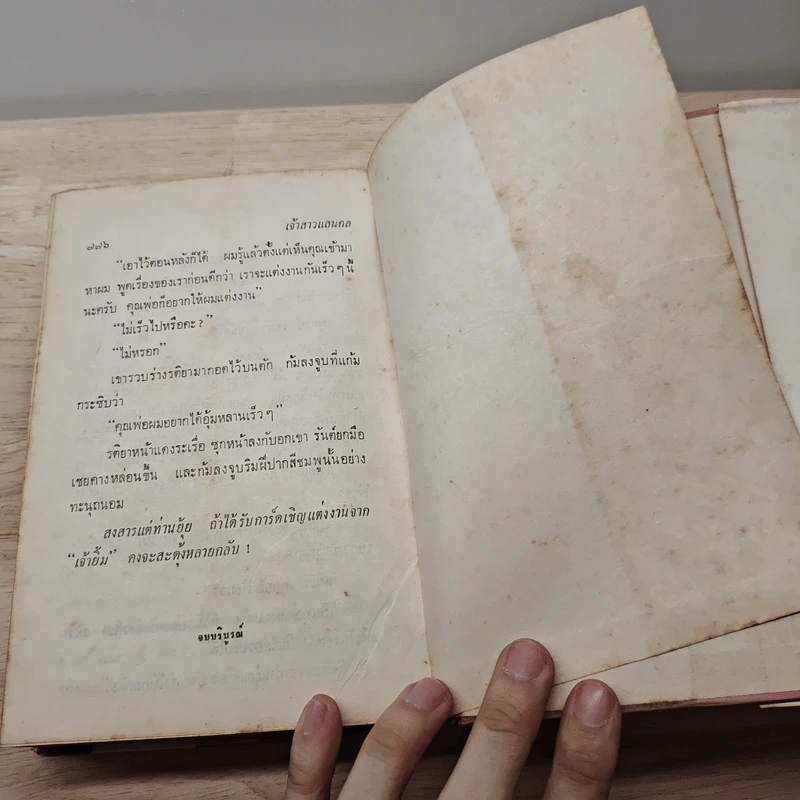 ๗๗๖
เจ้าสาวแสนกล
“เอาไว้ตอนหลังก็ได้ ผมรู้แล้วตั้งแต่เห็นคุณเข้ามา
หาผม พูดเรื่องของเราก่อนดีกว่า เราจะแต่งงานกันเร็วๆ นี้
นะครับ คุณพ่อก็อยากให้ผมแต่งงาน”
“ไม่เร็วไปหรือคะ ? ”
“ไม่หรอก”
เขารวบร่างรติยามากอดไว้บนตัก ก้มลงจูบที่แก้ม
กระซิบว่า
“คุณพ่อผมอยากได้อุ้มหลานเร็วๆ”
รติยาหน้าแดงระเรื่อ ซุกหน้าลงกับอกเขา รันต์ยกมือ
เชยคางหล่อนขึ้น และก้มลงจูบริมฝีปากสีชมพูนั้นอย่าง
ทะนุถนอม
สงสารแต่ท่านอุ้ย ถ้าได้รับการ์ดเชิญแต่งงานจาก
“เจ้ายิ้ม” คงจะสะดุ้งหลายกลับ !
จบบริบูรณ์